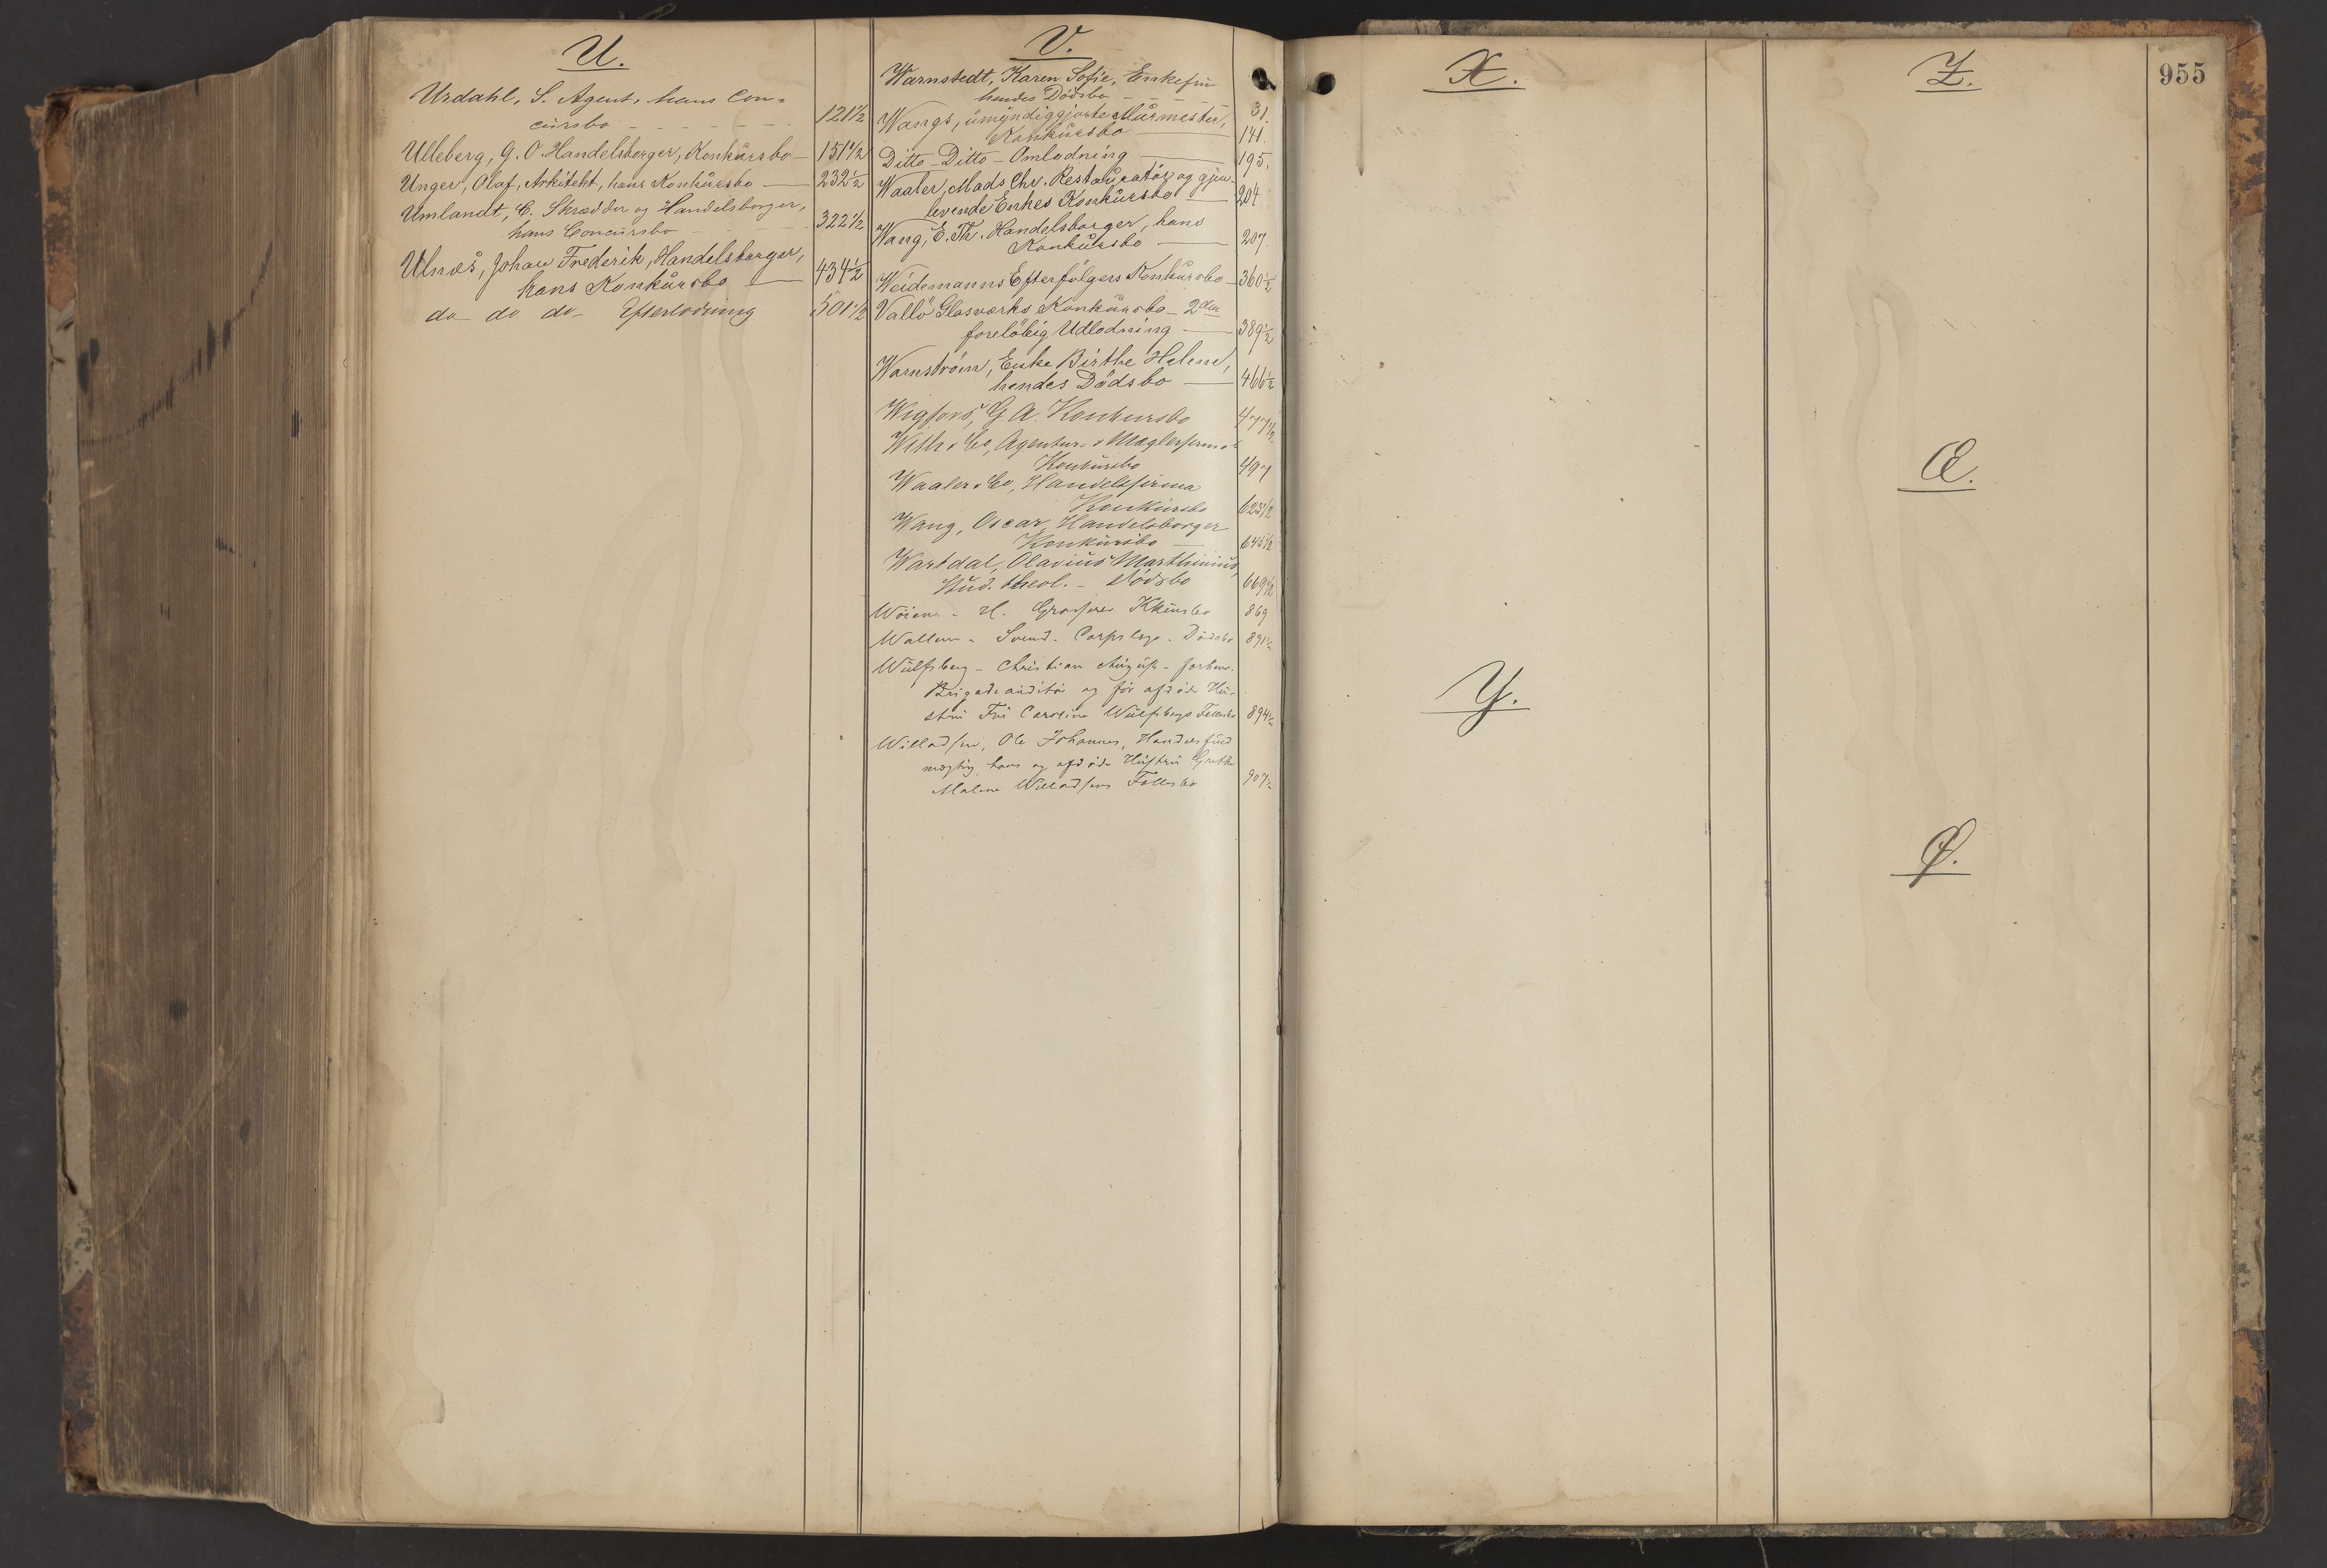 U.
Urdahl, S. Agent, hans Con-
cursbo - - - - - - 121½
Ulleberg, G. O. Handelsborger, Konkursbo - 151½
Unger, Olaf, Arkitekt, hans Konkursbo — 232½
Umlandt, C. Skrædder og Handelsborger,
hans Concursbo - - - - 322½
Ulnæs, Johan Frederik, Handelsborger,
hans Konkursbo — 434½
do do do Efterlodning 501½
V.
Wærnstedt, Karen Sofie, Enkefru
hendes Dødsbo - - - - 31.
Wangs, umyndiggjorte Murmester,
Konkursbo — 141.
Ditto - Ditto - Omlodning — 195.
Waaler, Mads Chr. Restauratør og gjen-
levende Enkes Konkursbo — 204
Wang, E. Th. Handelsborger, hans
Konkursbo — 207.
Weidemanns Efterfølgers Konkursbo - 360½
Vallö Glasværks Konkursbo - 2den
foreløbig Udlodning — 389½
Warnström, Enke Birthe Helene,
hendes Dödsbo — 466½
Wigfors, G. A. Konkursbo 477½
With & Co, Agentur- & Mæglerfirma
Konkursbo 497
Waaler & Co, Handelsfirma
Konkursbo 623½
Wang, Oscar, Handelsborger
Konkursbo — 645½
Wartdal, Olavius Marthinius,
Stud. theol. - Dödsbo 669½
Wöien - H. Grosserer Kkursbo 869
Wallem - Svend - Corpslæge - Dödsbo 891½
Wulfsberg - Christian August - forhenv.
Brigadeauditör og för afdöde Hu-
stru Fru Caroline Wulfsbergs Fællesbo 894½
Willadsen, Ole Johannes, Handelsfuld
mægtig, hans og afdöde Hustru Grethe
Malene Willadsens Fællesbo 907½
X.
Y.
Z.
955
Æ.
Ø.